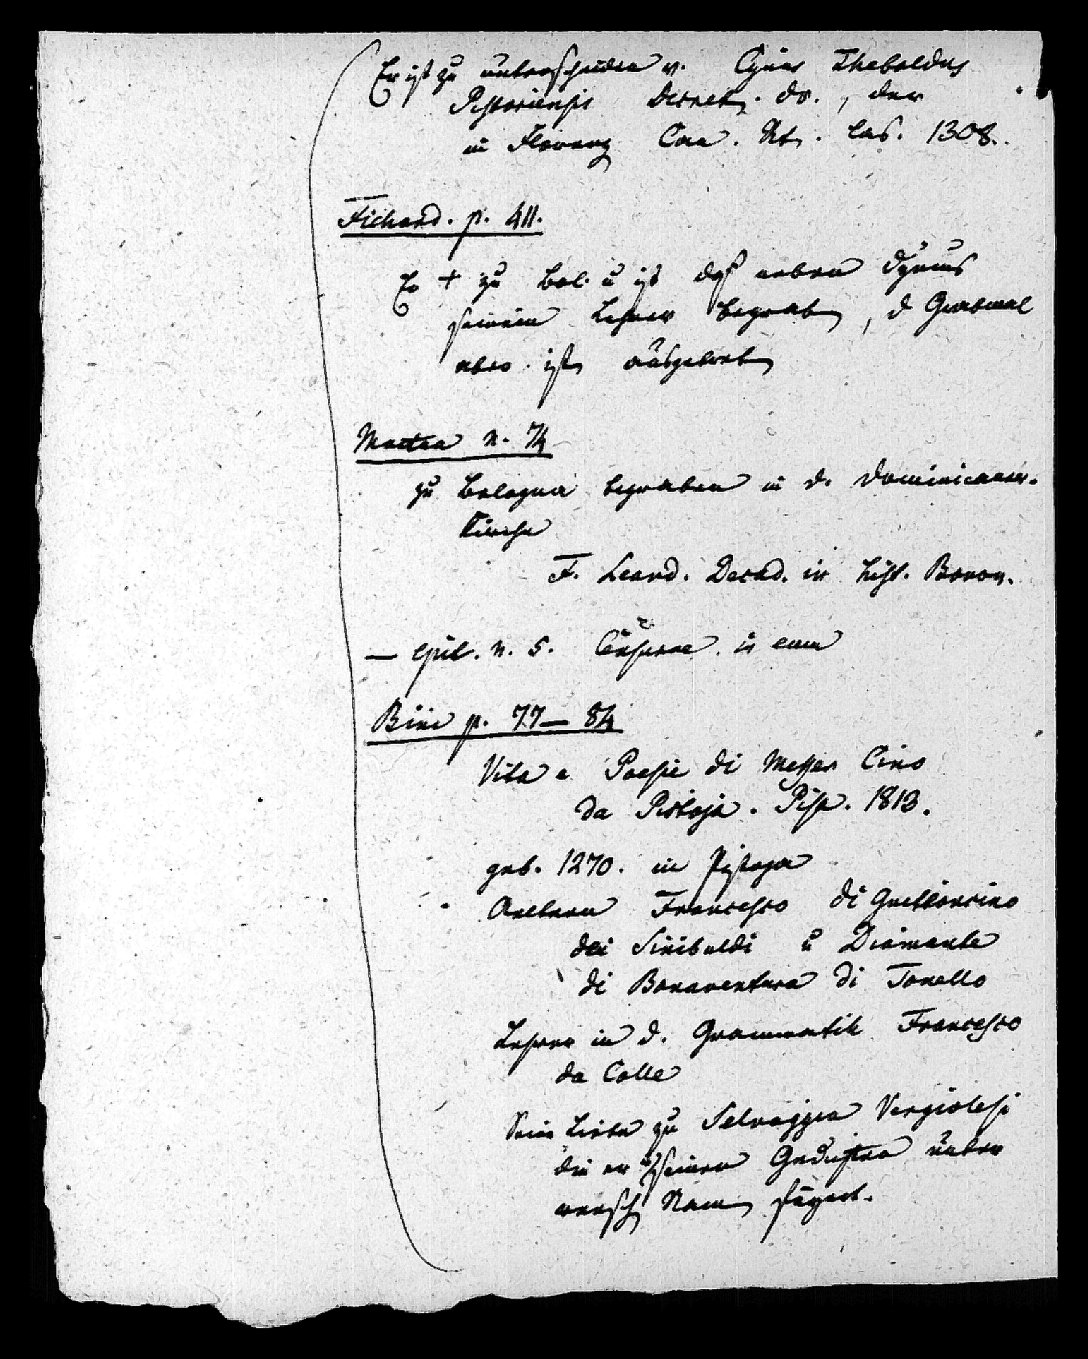 Er ist zu unterscheiden v. Cynus Thebaldus
Pistoriensis decret. dr., der
in Florenz Can. St. las. 1308.
Fichard. p. 411.
Er + zu Bol. u ist das neben Dynus
seinem Lehrer begraben, d Grabmal
aber ist
n. 74
zu Bologna begraben in d. Dominicaner-
Kirche
F. Leand. in hist. Bonon.
— n. 5. in eum
Bini p. 77— 84
Vita e Poesie di Messer Cino
da Pistoja. Pisa. 1813.
geb. 1270. in Pistoja
Aeltern Francesco di Guittoncino
dei Sinibaldi u Diamante
di Bonaventura di Tonello
Lehrer in d. Grammatik Francesco
da Colle
Seine Liebe zu Selvaggia Vergiolesi
die er in seinen Gedichten unter
versch Namen